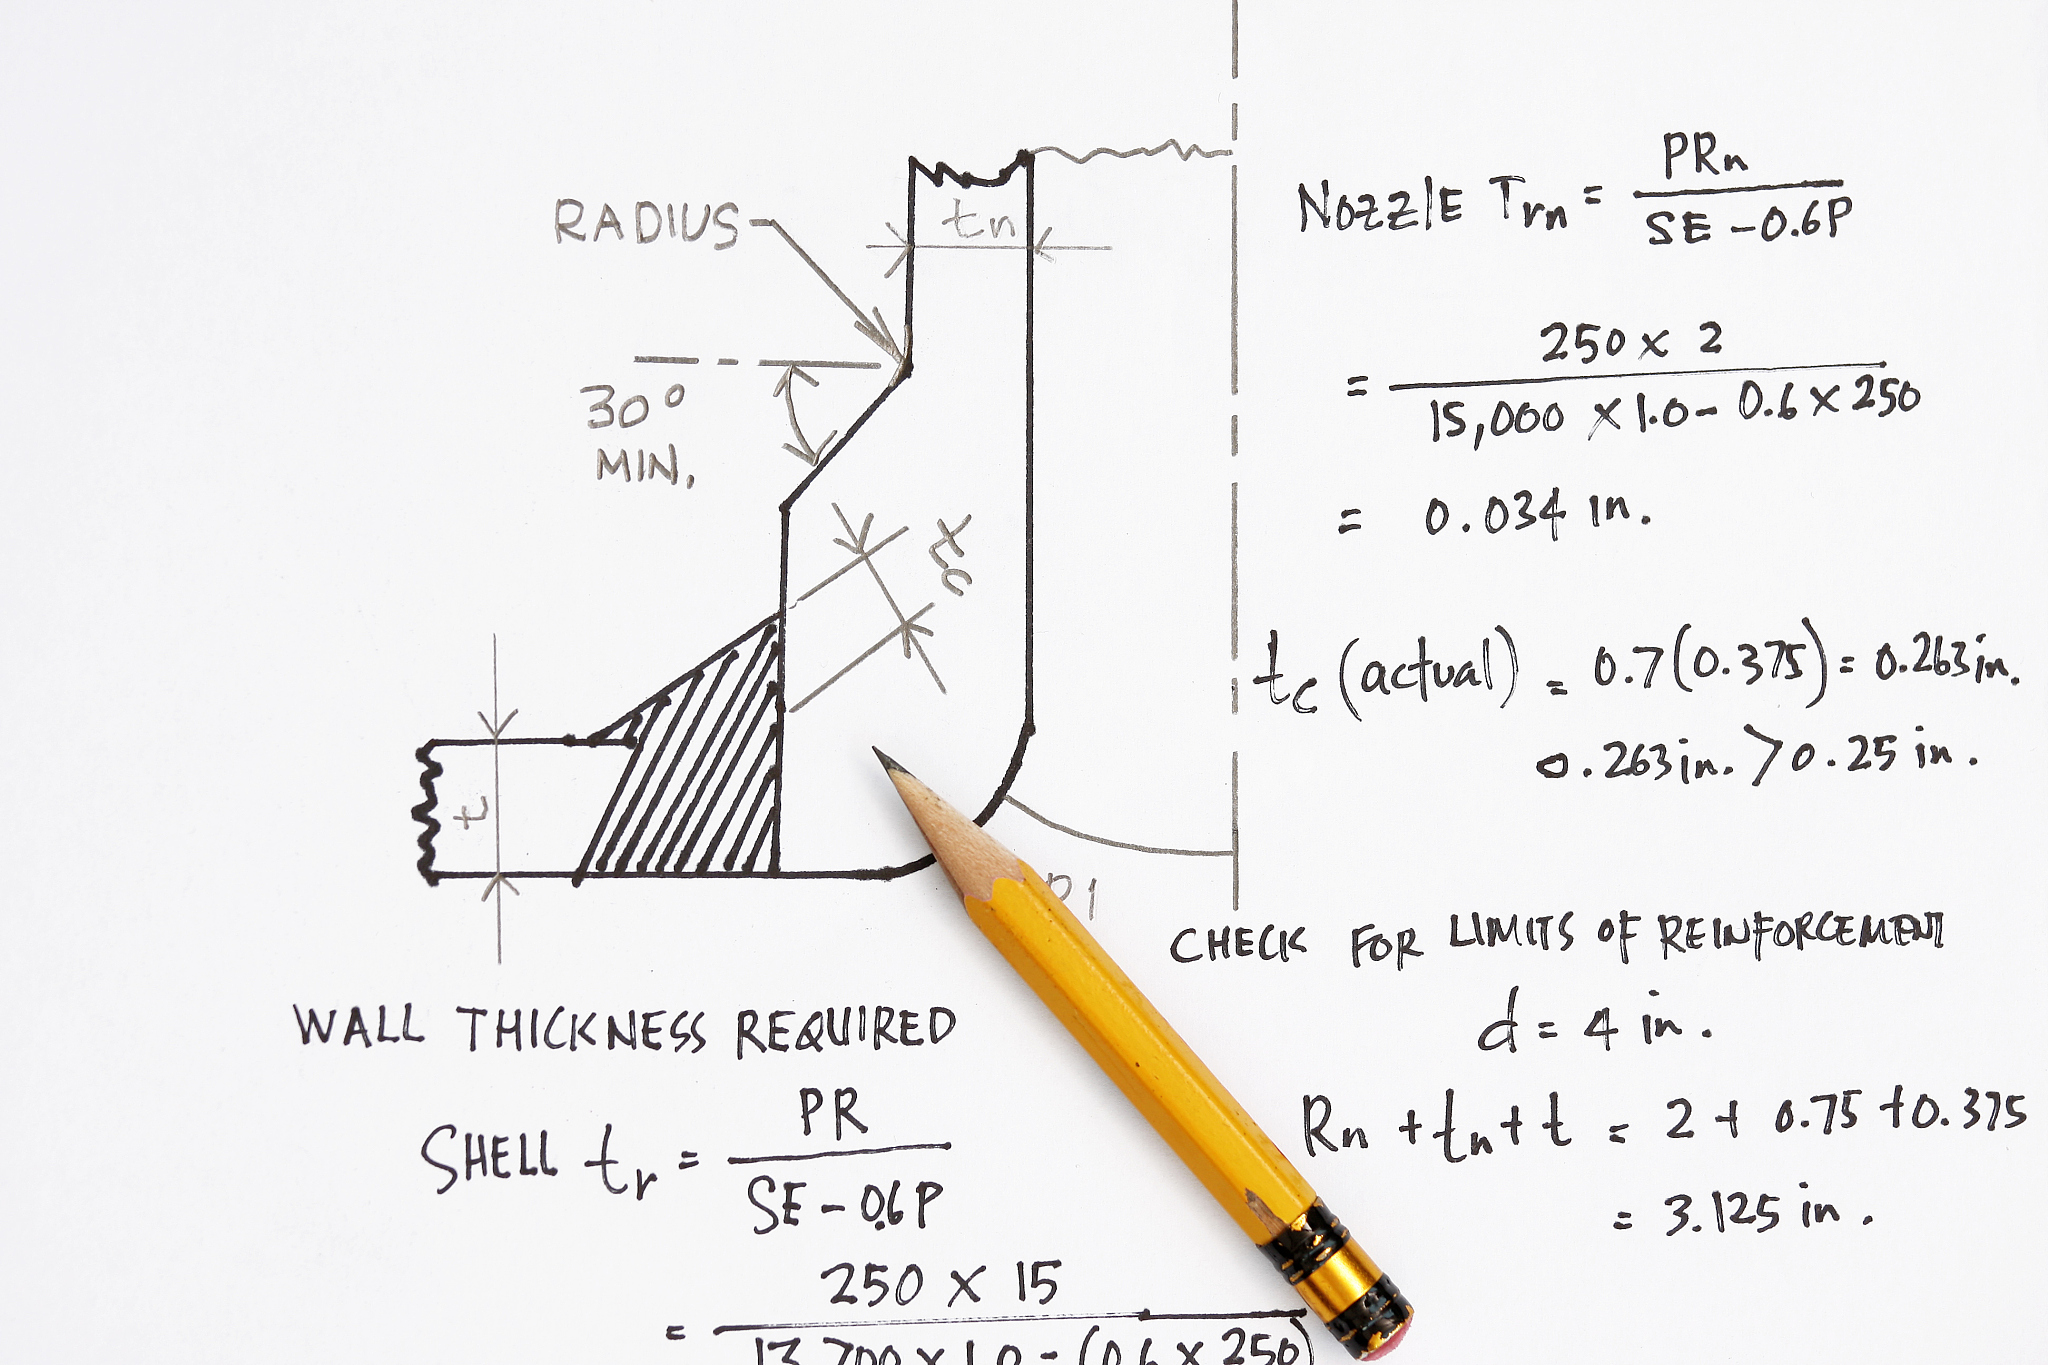 RADIUS
tn
30°
MIN.
t
NOZZLE Trn = PRn
SE - 0.6P
= 250 x 2
15,000 x 1.0 - 0.6 x 250
= 0.034 in.
tc (actual) = 0.7(0.375) = 0.263 in.
0.263 in. > 0.25 in.
CHECK FOR LIMITS OF REINFORCEMENT
d = 4 in.
Rn + tn + t = 2 + 0.75 + 0.375
= 3.125 in.
WALL THICKNESS REQUIRED
SHELL tr = PR
SE - 0.6P
= 250 x 15
13,700 x 1.0 - (0.6 x 250)